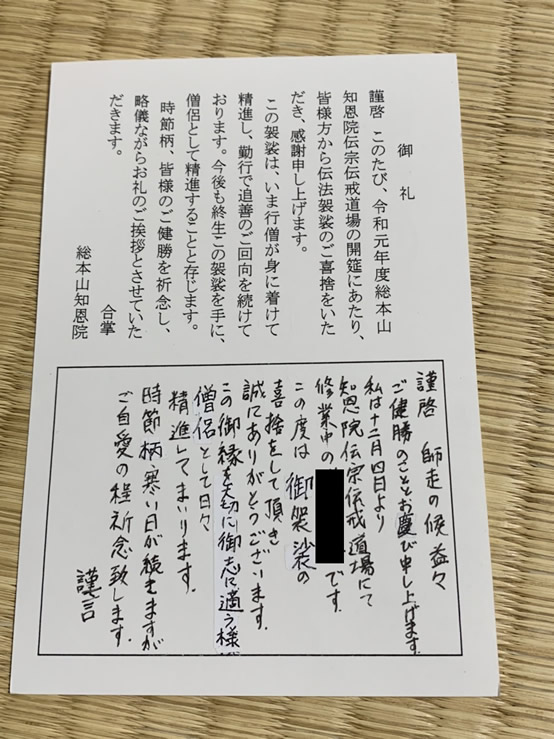 御礼
謹啓 このたび、令和元年度総本山
知恩院伝宗伝戒道場の開筵にあたり、
皆様方から伝法袈裟のご喜捨をいた
だき、感謝申し上げます。
この袈裟は、いま行僧が身に着けて
精進し、勤行で追善のご回向を続けて
おります。今後も終生この袈裟を手に、
僧侶として精進することと存じます。
時節柄、皆様のご健勝を祈念し、
略儀ながらお礼のご挨拶とさせていた
だきます。
合掌
総本山知恩院
謹啓 師走の候益々
ご健勝のこととお慶び申し上げます。
私は十二月四日より
知恩院伝宗伝戒道場にて
修業中の です。
この度は御袈裟の
喜捨をして頂き
誠にありがとうございます。
この御縁を大切に御志に適う様
僧侶として日々
精進してまいります。
時節柄、寒い日が続きますが
ご自愛の程祈念致します。
謹言